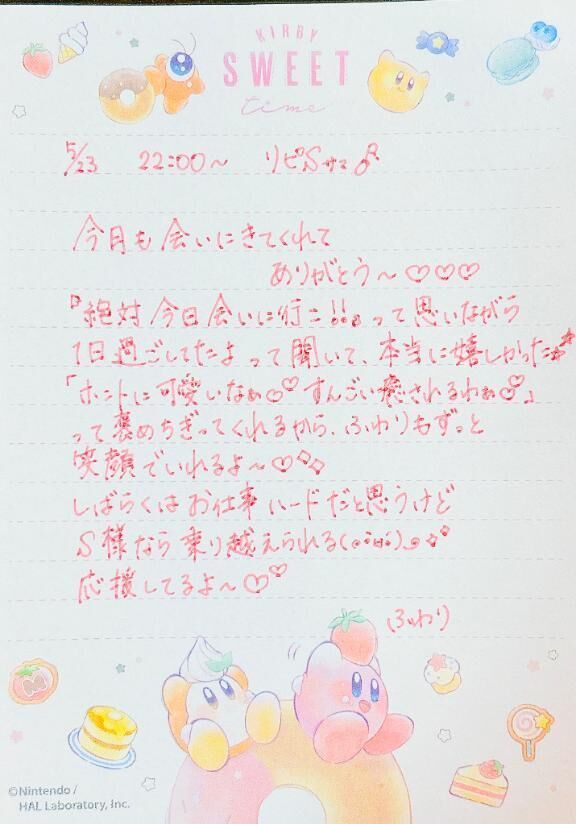 KIRBY
SWEET
time
5/23 22:00〜 リピSサマ♪
今月も会いにきてくれて
ありがとう〜♡♡♡
『絶対今日会いに行こ!!』って思いながら
1日過ごしてたよって聞いて、本当に嬉しかった☆
「ホントに可愛いなぁ♡♡すんごい癒されるわぁ♡♡」
って褒めちぎってくれるから、ふわりもずっと
笑顔でいれるよ〜♡
しばらくはお仕事ハードだと思うけど
S様なら乗り越えられる
応援してるよ〜♡♡
ふわり
©Nintendo /
HAL Laboratory, Inc.